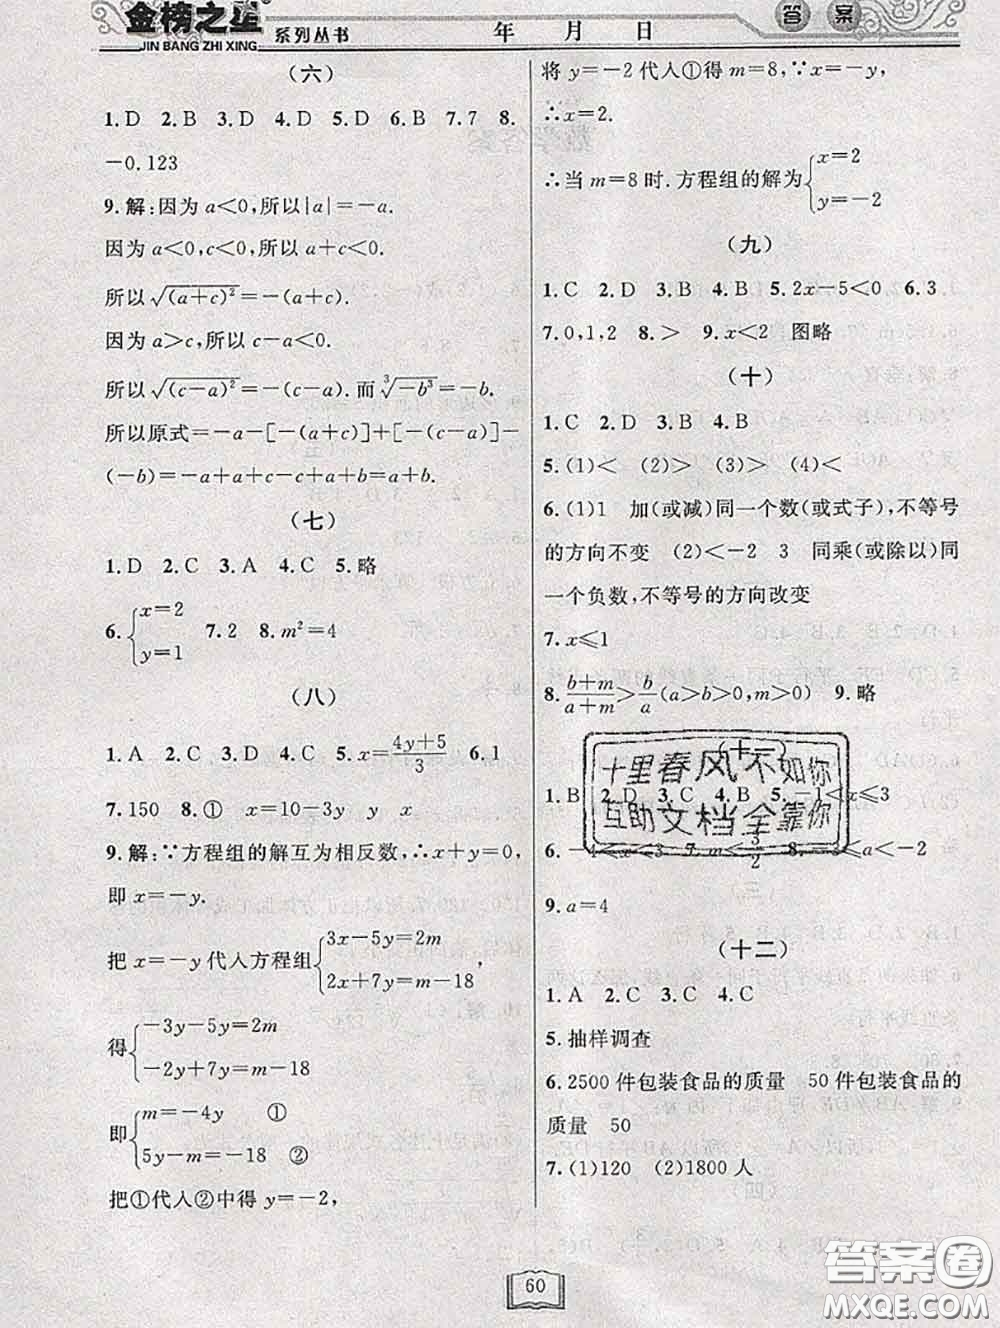 金榜之星
JIN BANG ZHI XING
系列丛书
年 月 日
答案
(六)
1.D 2.B 3.D 4.D 5.D 6.B 7.7 8.
-0.123
9.解:因为a<0,所以|a|=-a.
因为a<0,c<0,所以a+c<0.
所以√(a+c)²=-(a+c).
因为a>c,所以c-a<0.
所以√(c-a)²=-(c-a).而∛-b³=-b.
所以原式=-a-[-(a+c)]+[-(c-a)]-
(-b)=-a+a+c-c+a+b=a+b.
(七)
1.D 2.C 3.A 4.C 5.略
6.{x=2 y=1 7.2 8.m²=4
(八)
1.A 2.C 3.D 4.C 5.x=(4y+5)/3 6.1
7.150 8.① x=10-3y y x
9.解:∵方程组的解互为相反数,∴x+y=0,
即x=-y.
把x=-y代人方程组{3x-5y=2m 2x+7y=m-18,
得{-3y-5y=2m -2y+7y=m-18
即{m=-4y ① 5y-m=-18 ②
把①代人②中得y=-2,
将y=-2代人①得m=8,∵x=-y,
∴x=2.
∴当m=8时.方程组的解为{x=2 y=-2
(九)
1.C 2.D 3.B 4.B 5.2x-5<0 6.3
7.0,1,2 8.> 9.x<2 图略
(十)
1.C 2.D 3.B 4.B
5.(1)< (2)> (3)> (4)<
6.(1)1 加(或减)同一个数(或式子),不等号
的方向不变 (2)<-2 3 同乘(或除以)同
一个负数,不等号的方向改变
7.x≤1
8.(b+m)/(a+m)>b/a(a>b>0,m>0) 9.略
(十一)
十里春风不如你
1.B 2.D 3.C 4.B 5.-1<x≤3
互助文档全靠你
6.-4<x<3 7.m<3/2 8.-3≤a<-2
9.a=4
(十二)
1.A 2.C 3.C 4.C
5.抽样调查
6.2500件包装食品的质量 50件包装食品的
质量 50
7.(1)120 (2)1800人
60
答案圈
MXQE.COM